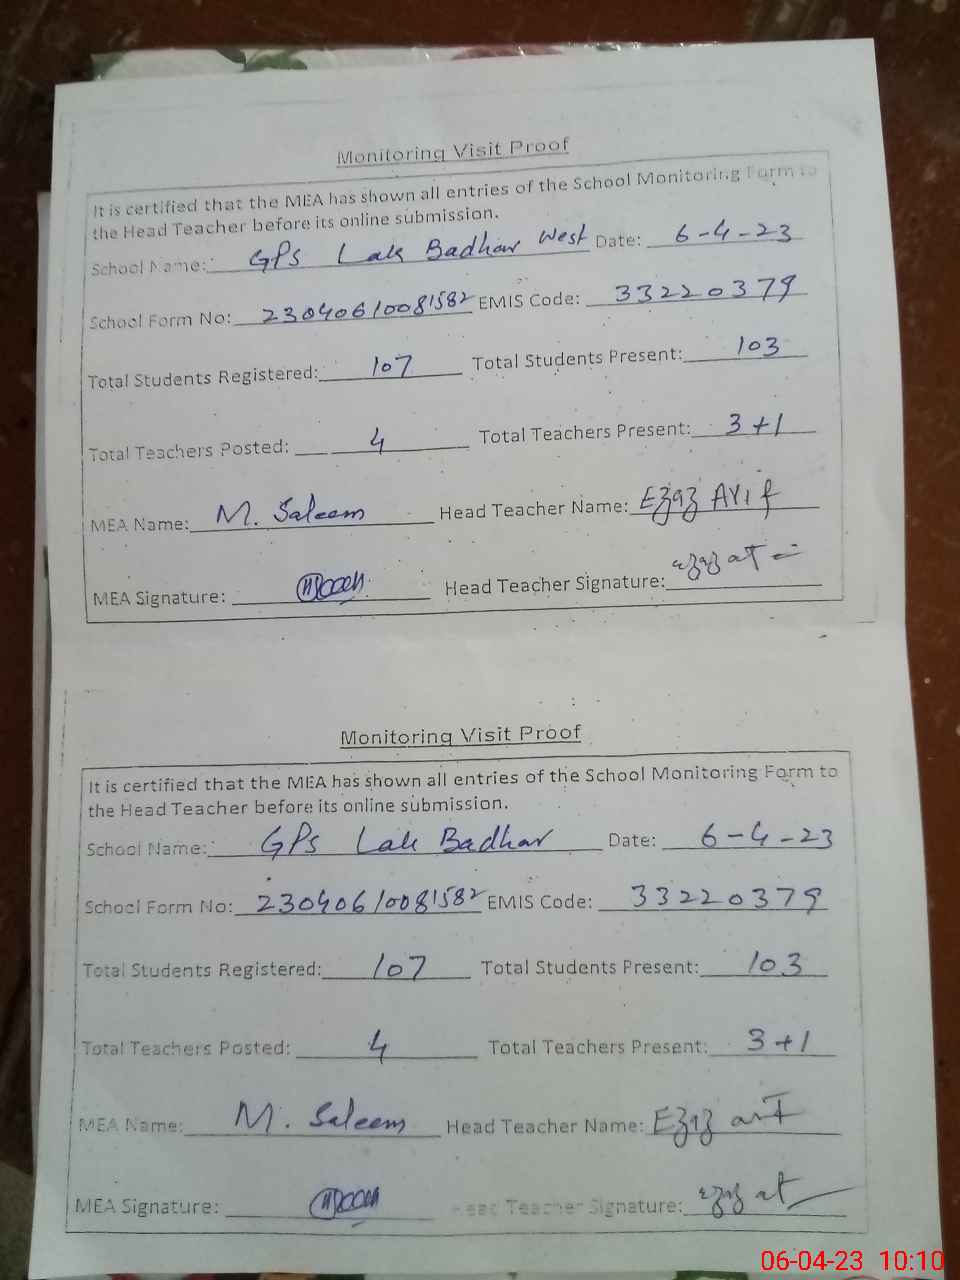 Monitoring Visit Proof
It is certified that the MEA has shown all entries of the School Monitoring Form to
the Head Teacher before its online submission.
School Name: GPS Lak Badhar West Date: 6-4-23
School Form No: 23040610081582 EMIS Code: 33220379
Total Students Registered: 107 Total Students Present: 103
Total Teachers Posted: 4 Total Teachers Present: 3+1
MEA Name: M. Saleem Head Teacher Name: Ezaz Arif
MEA Signature: Head Teacher Signature:
Monitoring Visit Proof
It is certified that the MEA has shown all entries of the School Monitoring Form to
the Head Teacher before its online submission.
School Name: GPS Lak Badhar Date: 6-4-23
School Form No: 23040610081582 EMIS Code: 33220379
Total Students Registered: 107 Total Students Present: 103
Total Teachers Posted: 4 Total Teachers Present: 3+1
MEA Name: M. Saleem Head Teacher Name: Ezaz
MEA Signature: Head Teacher Signature:
06-04-23 10:10